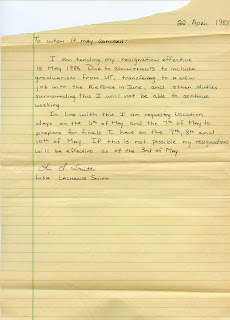 22 April 1985
To whom it may concern:
I am tending my resignation effective
15 May 1985. Due to commitments to include
graduation from UT, transfering to a new
job with the Airforce in June, and other duties
surrounding this I will not be able to continue
working.
In line with this I am requesting vacation
days on the 6th of May and the 7th of May to
prepare for finals I have on the 7th, 8th and
10th of May. If this is not possible my resignation
will be effective as of the 3rd of May.
Lisa